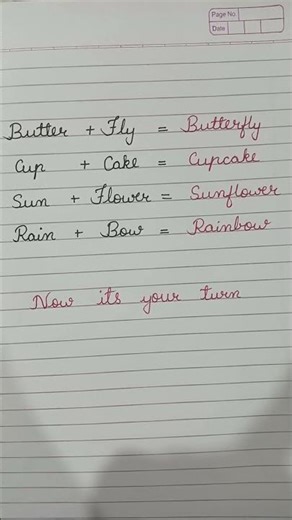 Page No.
Date
Butter + Fly = Butterfly
Cup + Cake = Cupcake
Sun + Flower = Sunflower
Rain + Bow = Rainbow
Now its your turn